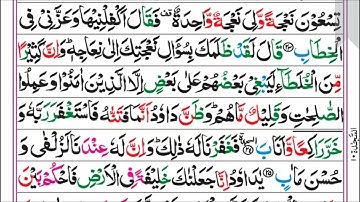 تِسْعُوْنَ نَعْجَةً وَّلِيَ نَعْجَةٌ وَّاحِدَةٌ ۫ فَقَالَ اَكْفِلْنِيْهَا وَعَزَّنِيْ فِي
الْخِطَابِ ﴿۲۳﴾ قَالَ لَقَدْ ظَلَمَكَ بِسُؤَالِ نَعْجَتِكَ اِلٰى نِعَاجِهٖ ؕ وَاِنَّ كَثِيْرًا
مِّنَ الْخُلَطَآءِ لَيَبْغِيْ بَعْضُهُمْ عَلٰى بَعْضٍ اِلَّا الَّذِيْنَ اٰمَنُوْا وَعَمِلُوا
الصّٰلِحٰتِ وَقَلِيْلٌ مَّا هُمْ ؕ وَظَنَّ دَاوٗدُ اَنَّمَا فَتَنّٰهُ فَاسْتَغْفَرَ رَبَّهٗ وَ
خَرَّ رَاكِعًا وَّاَنَابَ ﴿۲۴﴾ فَغَفَرْنَا لَهٗ ذٰلِكَ ؕ وَاِنَّ لَهٗ عِنْدَنَا لَزُلْفٰى وَ
حُسْنَ مَاٰبٍ ﴿۲۵﴾ يٰدَاوٗدُ اِنَّا جَعَلْنٰكَ خَلِيْفَةً فِي الْاَرْضِ فَاحْكُمْ بَيْنَ
السجدة ١٠